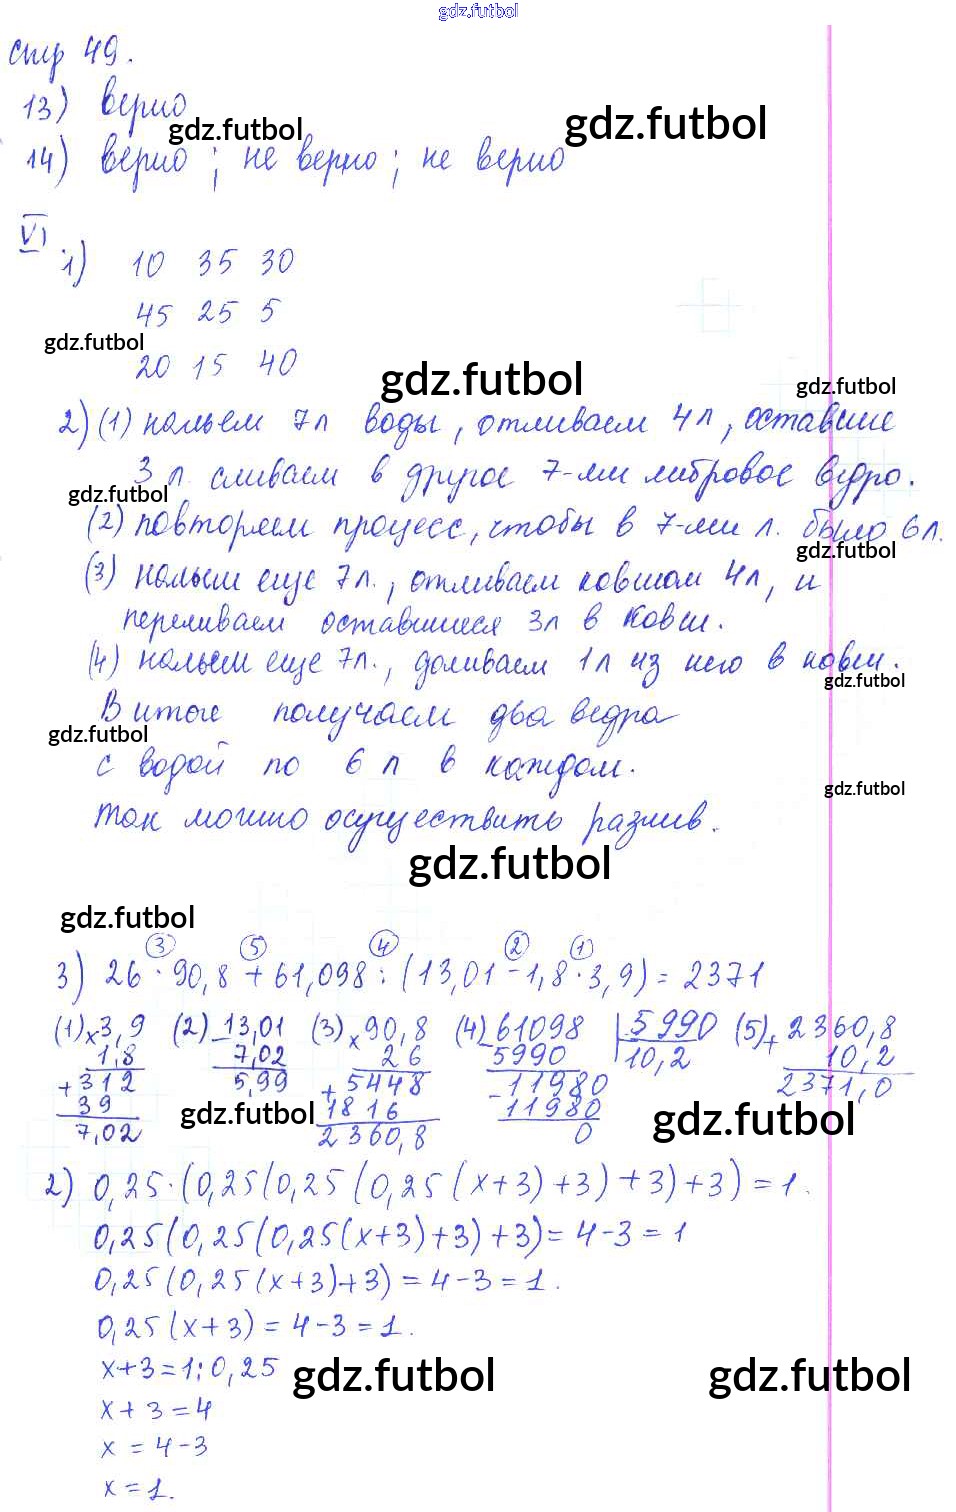 gdz.futbol
стр 49.
13) верно
gdz.futbol gdz.futbol
14) верно ; не верно ; не верно
VI
1) 10 35 30
45 25 5
gdz.futbol
20 15 40
gdz.futbol gdz.futbol
2) (1) нальем 7л воды, отливаем 4л, оставшие
3 л. сливаем в другое 7-ми литровое ведро.
gdz.futbol
(2) повторяем процесс, чтобы в 7-ми л. было 6л.
gdz.futbol
(3) нальем еще 7л., отливаем ковшом 4л, и
переливаем оставшиеся 3л в ковш.
(4) нальем еще 7л., доливаем 1л из него в ковш.
gdz.futbol
В итоге получаем два ведра
gdz.futbol
с водой по 6 л в каждом.
gdz.futbol
Так можно осуществить разлив.
gdz.futbol
gdz.futbol
③ ⑤ ④ ② ①
3) 26 · 90,8 + 61,098 : (13,01 - 1,8 · 3,9) = 2371
(1) × 3,9 (2) - 13,01 (3) × 90,8 (4) - 61098 | 5990 (5) + 2360,8
1,8 7,02 26 5990 10,2 10,2
+ 312 5,99 + 5448 - 11980 2371,0
39 1816 11980
gdz.futbol gdz.futbol
7,02 2360,8 0
2) 0,25 · (0,25(0,25(0,25(x+3)+3)+3)+3) = 1.
0,25(0,25(0,25(x+3)+3)+3) = 4-3 = 1
0,25(0,25(x+3)+3) = 4-3 = 1.
0,25(x+3) = 4-3 = 1.
x+3 = 1:0,25
gdz.futbol gdz.futbol
x+3 = 4
x = 4-3
x = 1.